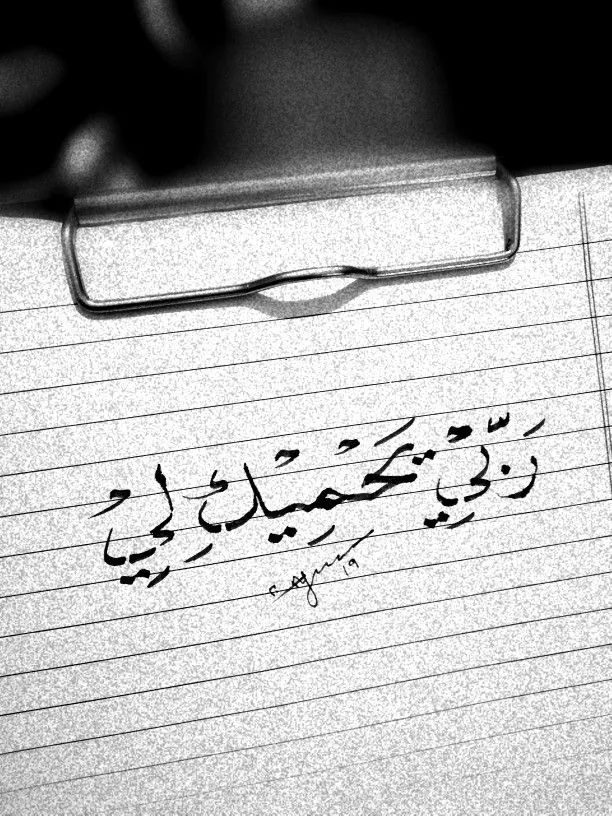 رَبِّيْ يَحْمِيْكِ لِيْ
19